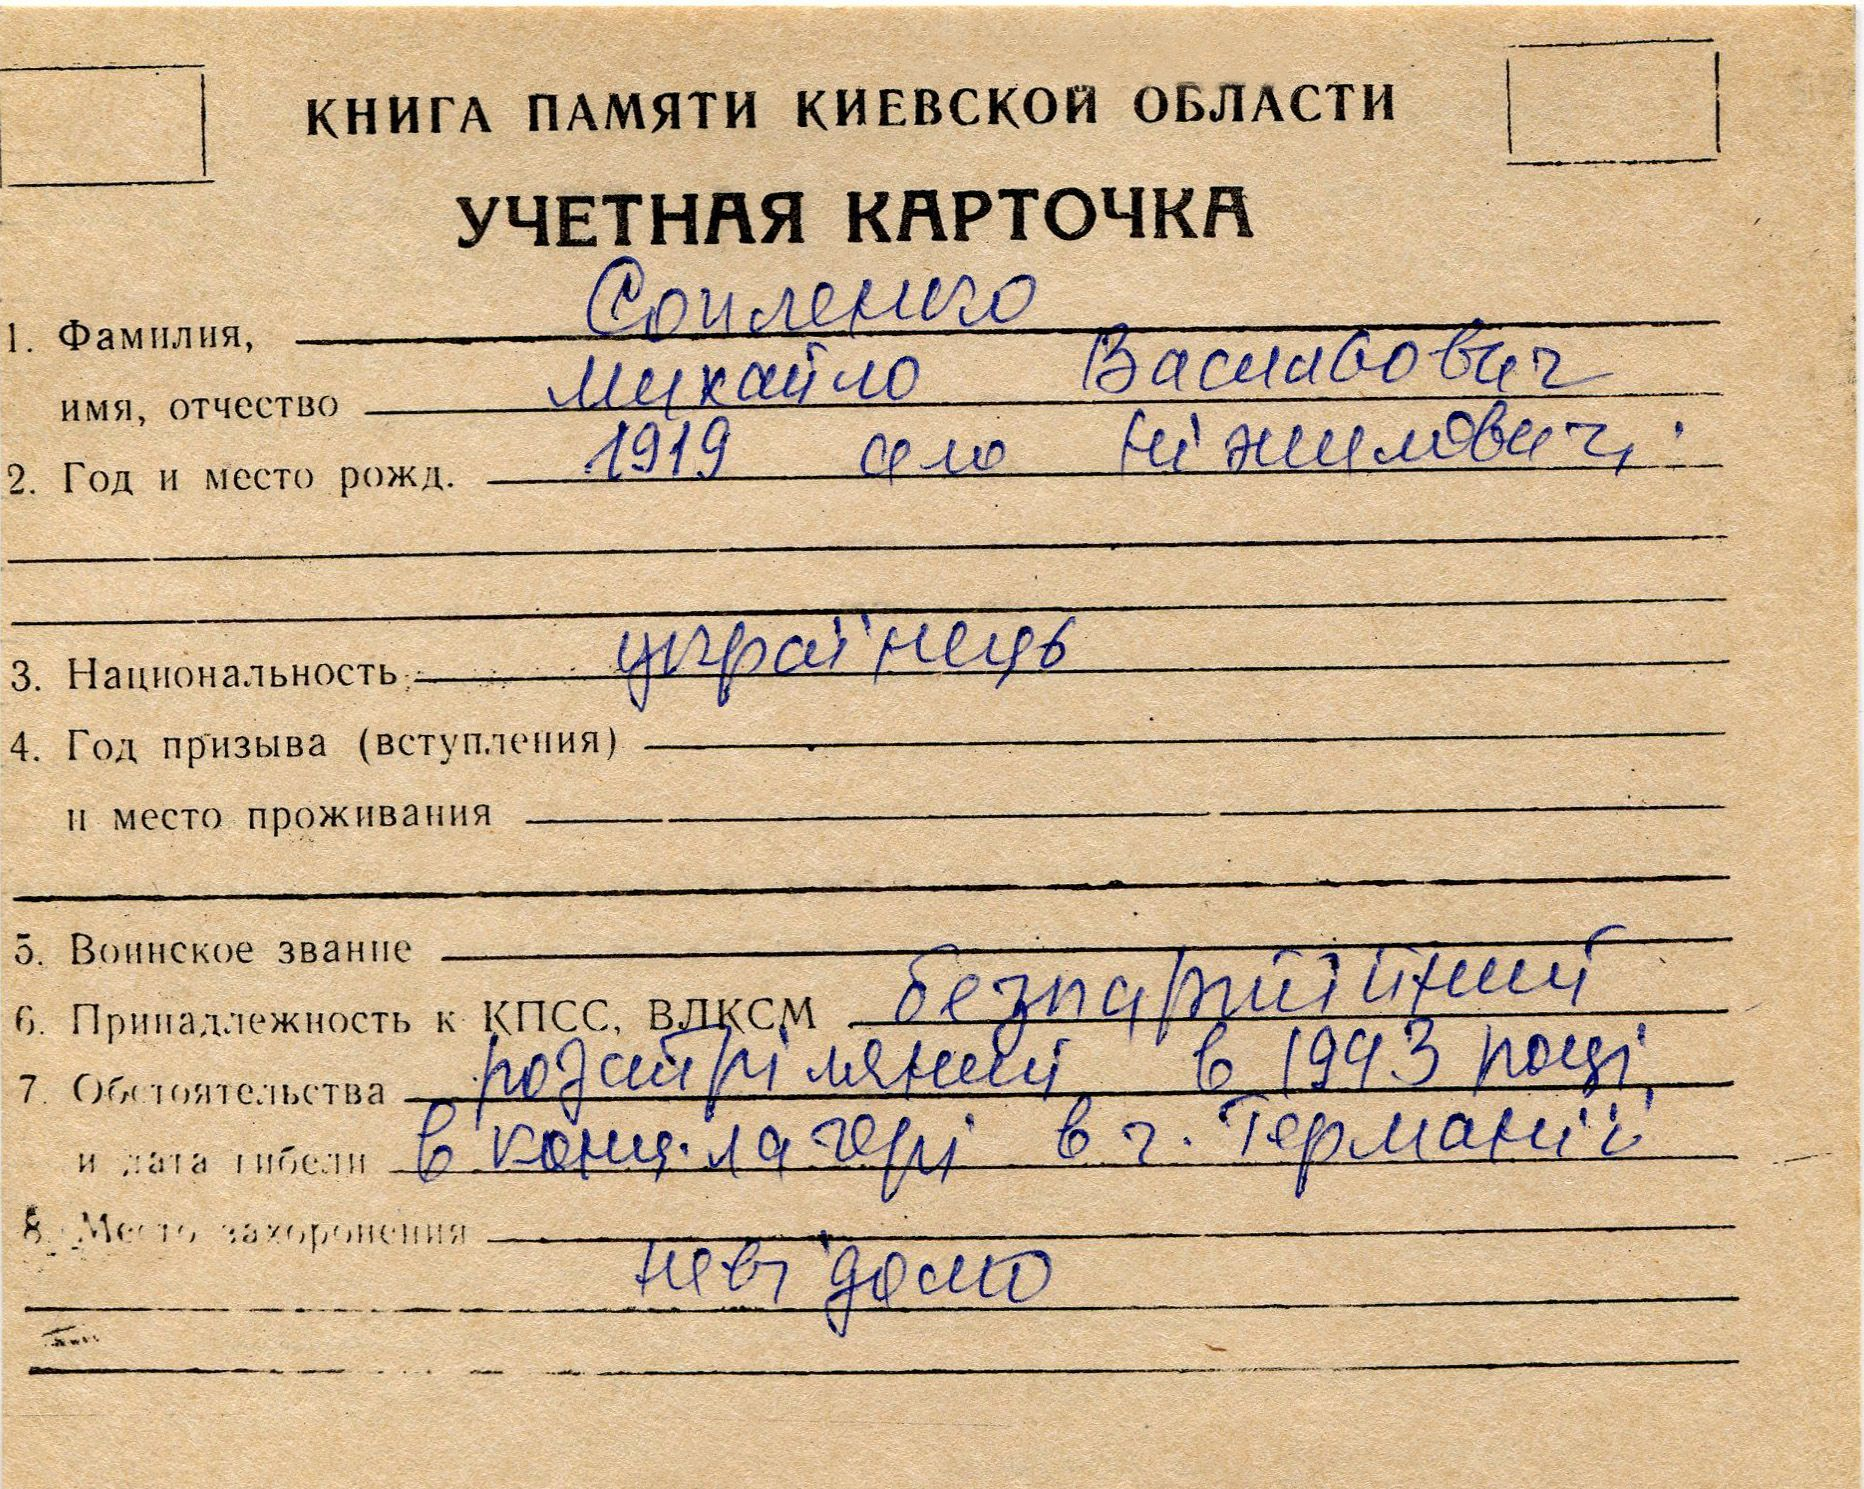 КНИГА ПАМЯТИ КИЕВСКОЙ ОБЛАСТИ
УЧЕТНАЯ КАРТОЧКА
1. Фамилия, Сопленко
имя, отчество Михайло Васильович
2. Год и место рожд. 1919 село Ніжиловичі
3. Национальность українець
4. Год призыва (вступления)
и место проживания
5. Воинское звание
6. Принадлежность к КПСС, ВЛКСМ безпартійний
7. Обстоятельства розстріляний в 1943 році
и дата гибели в конц.лагері в г. Германії
8. Место захоронения
невідомо